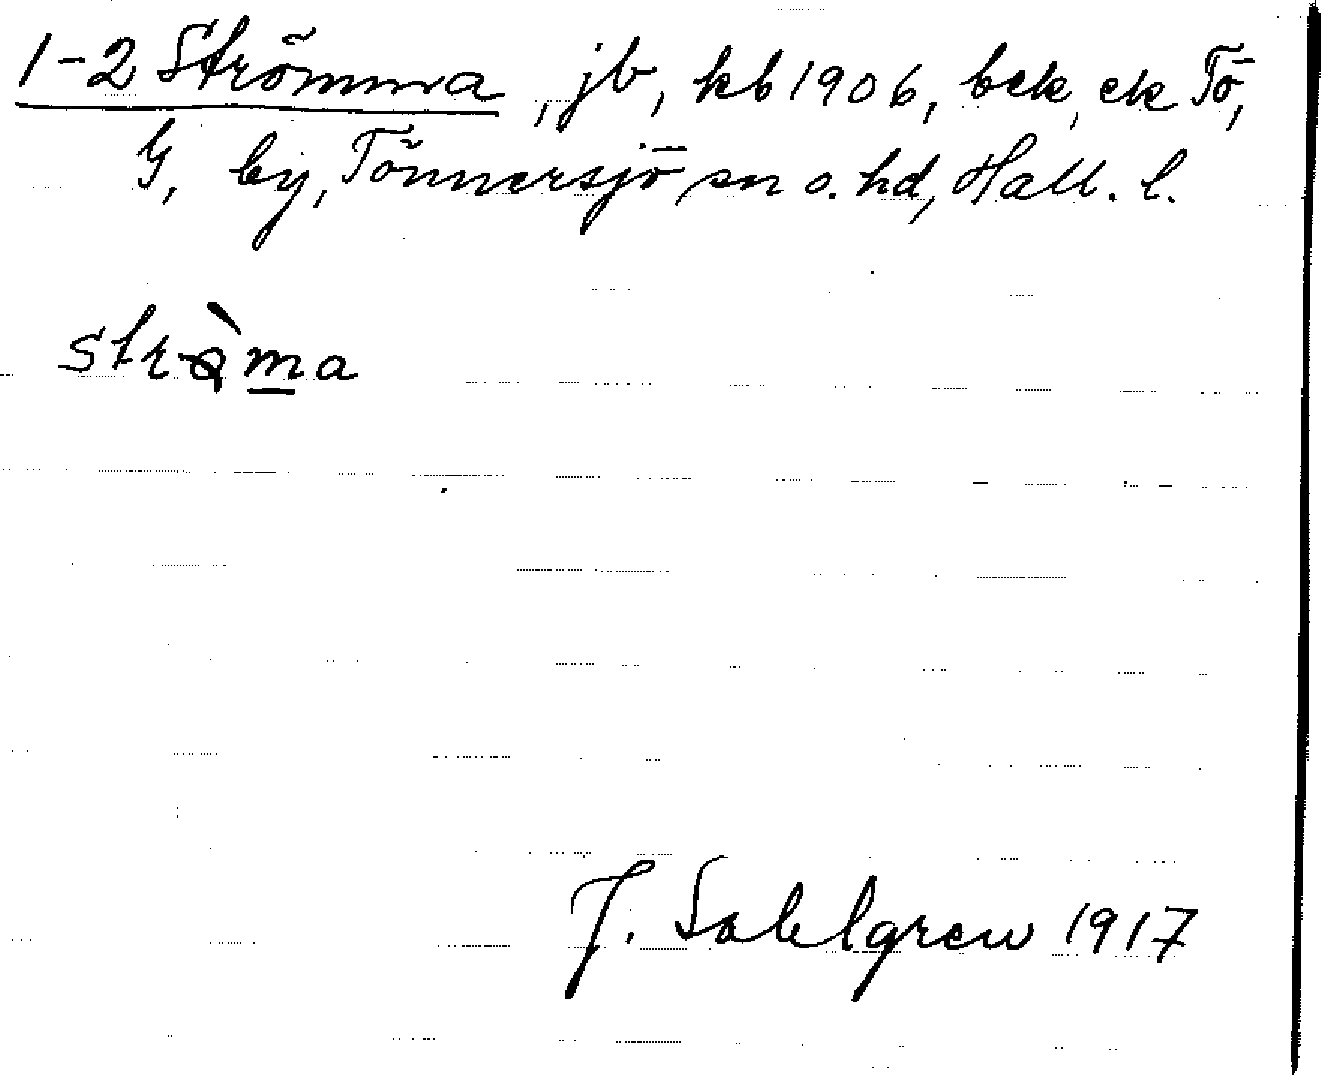 1-2 Strömma, jb, kb 1906, bek, ek Tö,
G, by, Tönnersjö sn o. hd, Hall. l.
strǫ̀m̲a
J. Sahlgren 1917